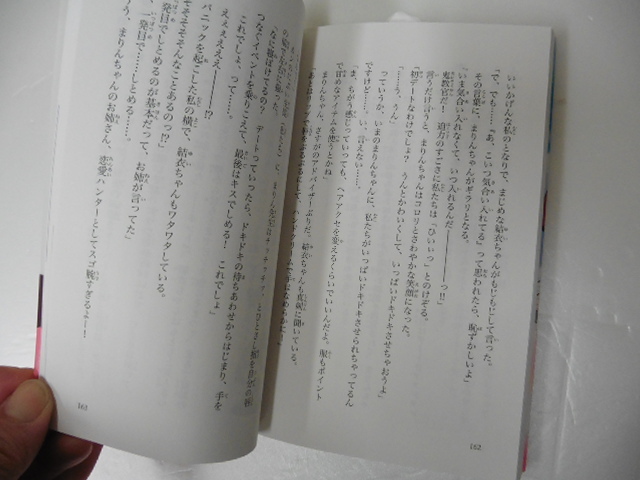 いいかげんな私のとなりで、まじめな結衣ちゃんがもじもじして言った。
「で、でも……『あ、こいつ気合い入れてる』って思われたら、恥ずかしいよ」
その言葉に、まりんちゃんがギラリとなる。
「いま気合い入れなくて、いつ入れるんだ――――っ!!」
鬼教官だ! 迫力のすごさに私たちは「ひいいっ」とのけぞる。
言うだけ言うと、まりんちゃんはコロリとさわやかな笑顔になった。
「初デートなわけでしょ? うんとかわいくして、いっぱいドキドキさせちゃおうよ」
「……う、うん」
っていうか、いまのまりんちゃんに、私たちがいっぱいドキドキさせられちゃってるん
ですけど……い、言えない……。
「ま、ちがう感じっていっても、ヘアアクセを変えるくらいでいいんだよ。服もポイント
で甘めなアイテムを使うとかね」
まりんちゃん、さすがのアドバイザーぶりだ。結衣ちゃんも真剣に聞いている。
162
つなぐイベントを乗りこえて、最後はキスでしめる! これでしょ」
これでしょ、って……。
えぇええええ――!
パニックを起こした私の横で、結衣ちゃんもワタワタしている。
そそそそんなことあるのっ!?」
一発目でしとめるのが基本だって、お姉が言ってた」
一発目で……しとめる……。
う、まりんちゃんのお姉さん、恋愛ハンターとしてスゴ腕すぎるよー!
163